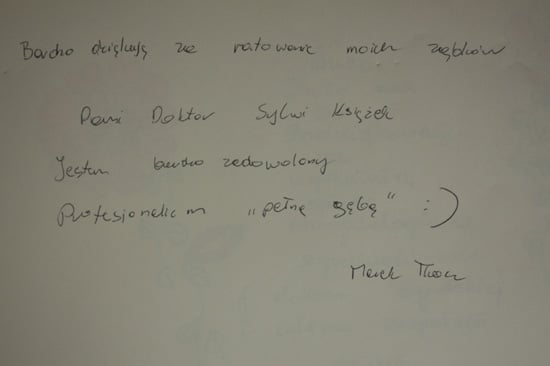 Bardzo dziękuję za ratowanie moich ząbków
Pani Doktor Sylwi Książek
Jestem bardzo zadowolony
Profesjonalizm „pełną gębą" :)
Marek